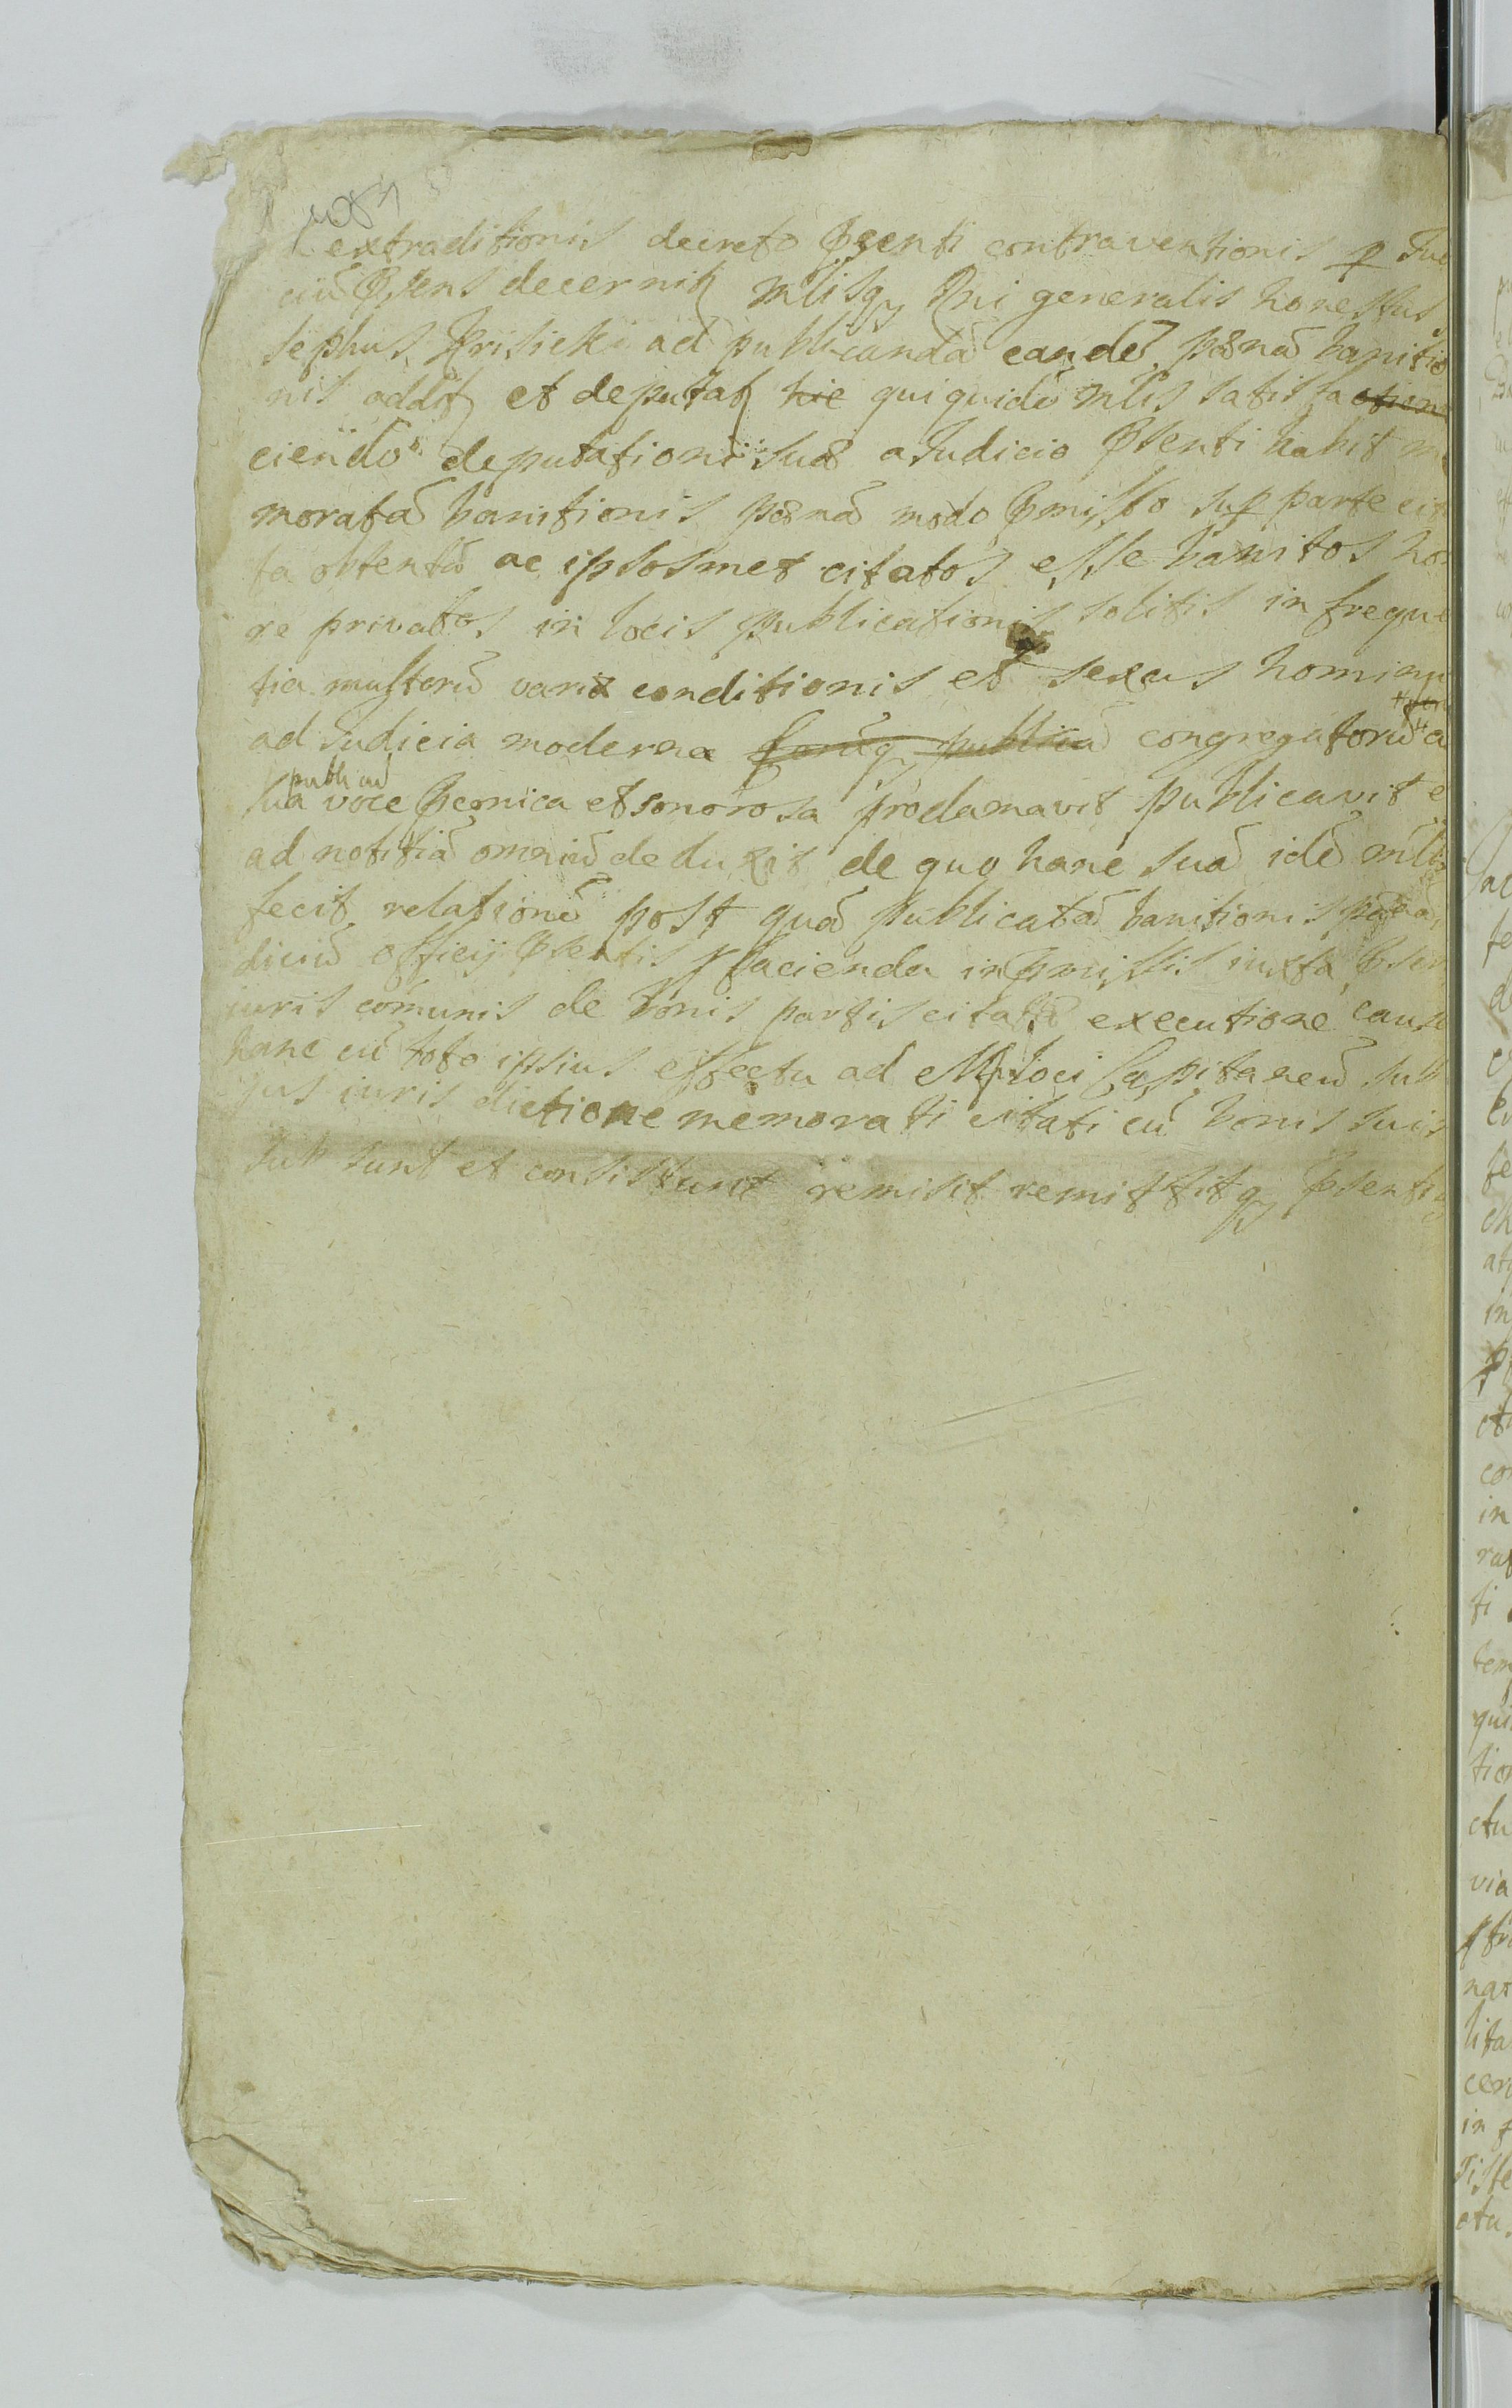 extraditionis decreto Psenti contraventionis p Iu
ciū Psens decernit mlisq Rni generalis honestus
sephus Krisicki ad publicandā eandē pœnā banitio
nis addit et deputat hic qui quidē mlis satisfactione
ciendo deputationi suæ a Iudicio Psenti habit me
moratā banitionis pœnā modo Pmisso sup parte cit
ta obtentā ac ipsosmet citatos esse banitos ho
re privatos in locis publicationis solitis in freque
tia multorū variæ conditionis et sexus hominu
ad Iudicia moderna congregatorū a
publicā
sua voce Peonica et sonorosa proclamavit publicavit e
ad notitiā omniū deduxit de quo hanc suā idē mlis
fecit relationē post quā publicatā banitionis pœnā
diciū officij Psentis facienda in Pmissis iuxta
iuris comunis de bonis partis citatæ executione caus
hanc cū toto ipsius effectu ad loci Capitaneū sub
jus iuris dictione memorati citati cū bonis suis
sub sunt et consistunt remisit remittitq Psenti